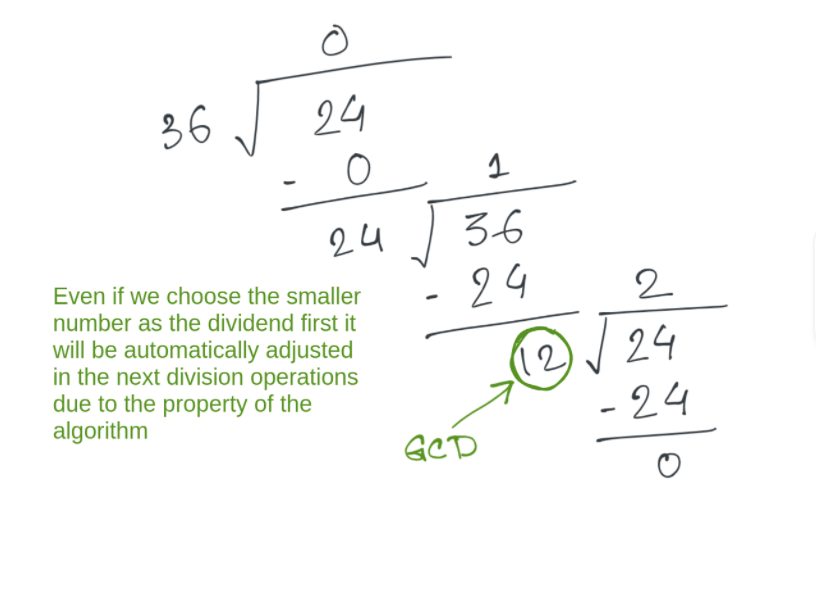 0
36 √ 24
- 0
1
24 √ 36
- 24
2
12 √ 24
- 24
0
GCD
Even if we choose the smaller
number as the dividend first it
will be automatically adjusted
in the next division operations
due to the property of the
algorithm